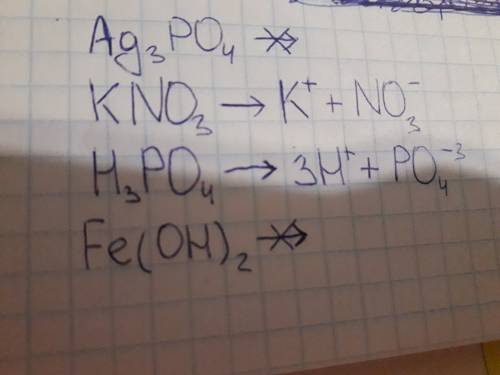 Ag₃PO₄ ↛
KNO₃ → K⁺ + NO₃⁻
H₃PO₄ → 3H⁺ + PO₄⁻³
Fe(OH)₂ ↛